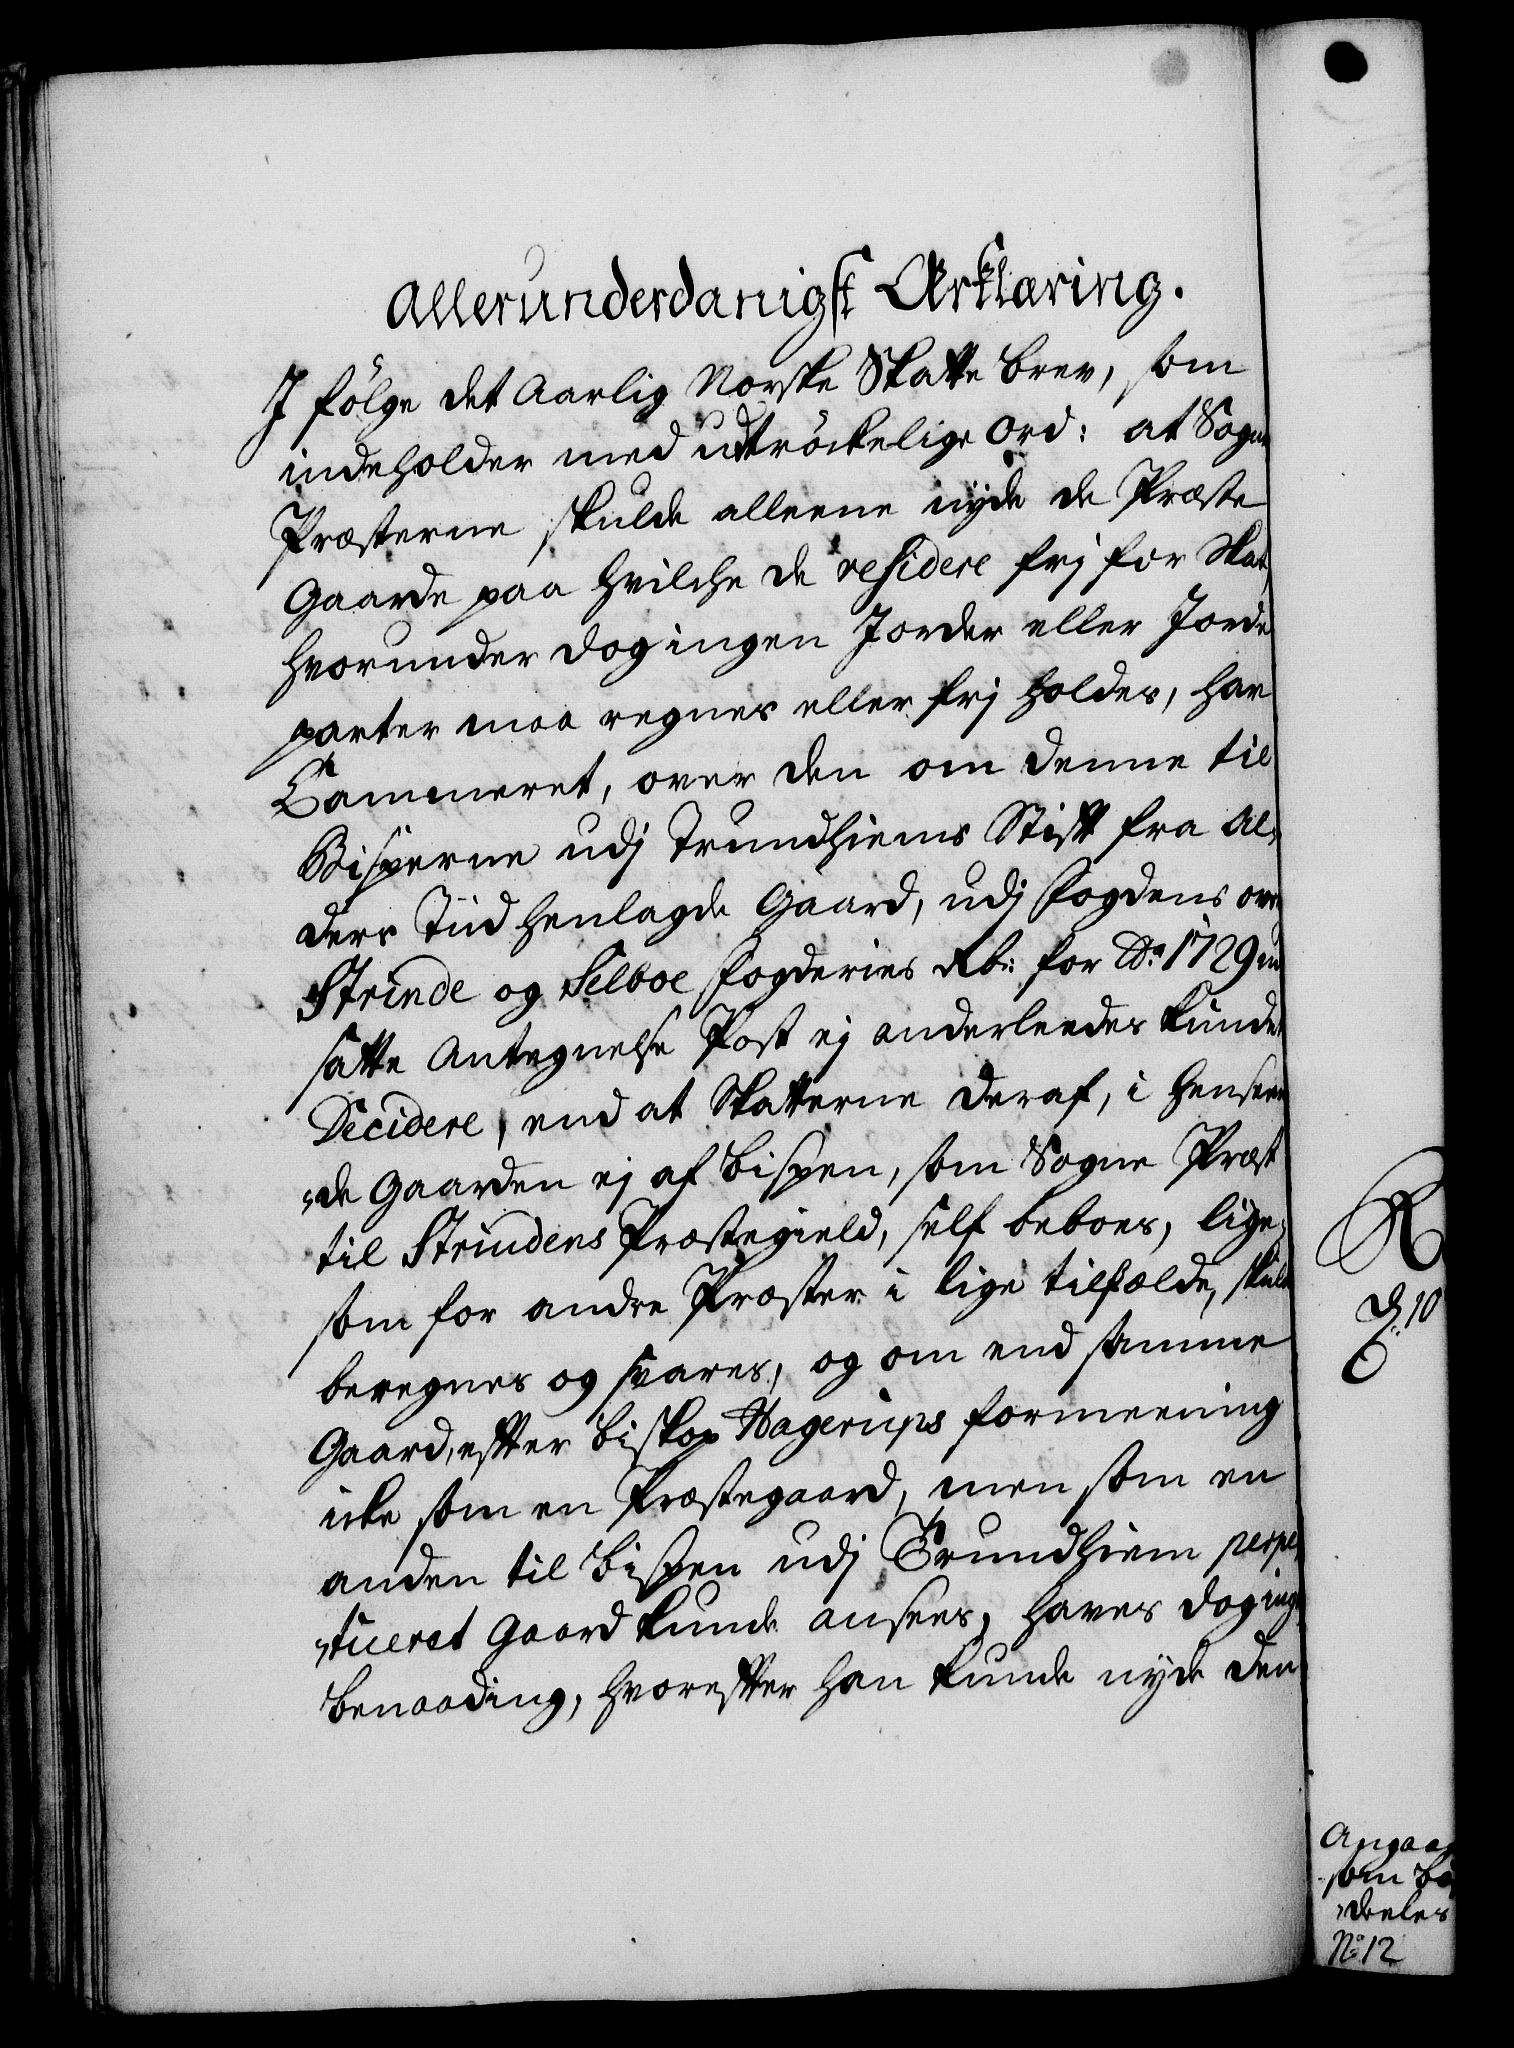 Allerunderdanigst Erklæring.
J følge det Aarlig Norske Skatte brev, som
indeholder med udtröckelige Ord: at Sogne
Præsterne skulde alleene nyde de Præste
Gaarde paa hvilche de residere frj for Skat,
hvorunder dog ingen Jorder eller Jorde
parter maa regnes eller frj holdes, har
Cammeret, over den om denne til
Bisperne udj Trundhiems Stift fra Al„
ders Tiid henlagde Gaard, udj Fogdens over
Strinde og Selboe Fogderies Rb: for Ao 1729 ud
satte Antegnelse Post ej anderleedes kunde
Decidere, end at Skatterne deraf, i henseen
„de Gaarden ej af Bispen, som Sogne Præst
til Strindens Præstegield, self beboes, lige„
som for andre Præster i lige tilfælde, skulde
beregnes og svares, og om end samme
Gaard, efter biskop Hagerups formeening
icke som en Præstegaard, men som en
anden til Bispen udj Trundhiem perpe„
„tueret Gaard kunde ansees, haves dog ingen
benaading, hvorefter han kunde nyde den
R
10
Angaa
som
deeles
No 12